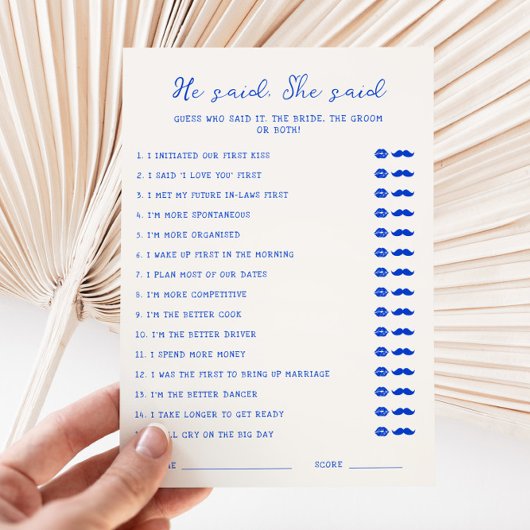 He said, She said
GUESS WHO SAID IT. THE BRIDE, THE GROOM
OR BOTH!
1. I INITIATED OUR FIRST KISS
2. I SAID 'I LOVE YOU' FIRST
3. I MET MY FUTURE IN-LAWS FIRST
4. I'M MORE SPONTANEOUS
5. I'M MORE ORGANISED
6. I WAKE UP FIRST IN THE MORNING
7. I PLAN MOST OF OUR DATES
8. I'M MORE COMPETITIVE
9. I'M THE BETTER COOK
10. I'M THE BETTER DRIVER
11. I SPEND MORE MONEY
12. I WAS THE FIRST TO BRING UP MARRIAGE
13. I'M THE BETTER DANCER
14. I TAKE LONGER TO GET READY
CRY ON THE BIG DAY
SCORE